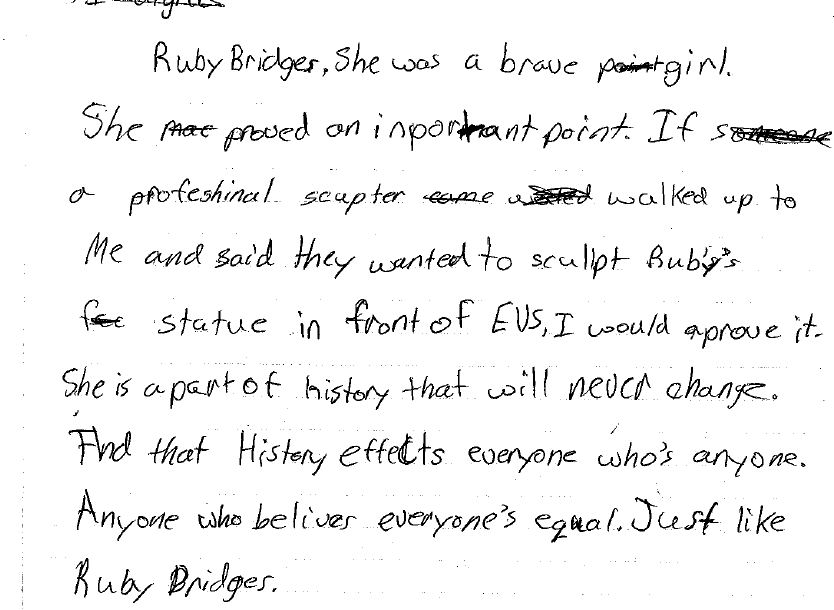 Ruby Bridges, She was a brave girl.
She proved an inportant point. If
a profeshinal scupter walked up to
Me and said they wanted to sculpt Ruby's
statue in front of EUS, I would aprove it.
She is a part of history that will never change.
And that History effects everyone who's anyone.
Anyone who beliver everyone's equal. Just like
Ruby Bridges.